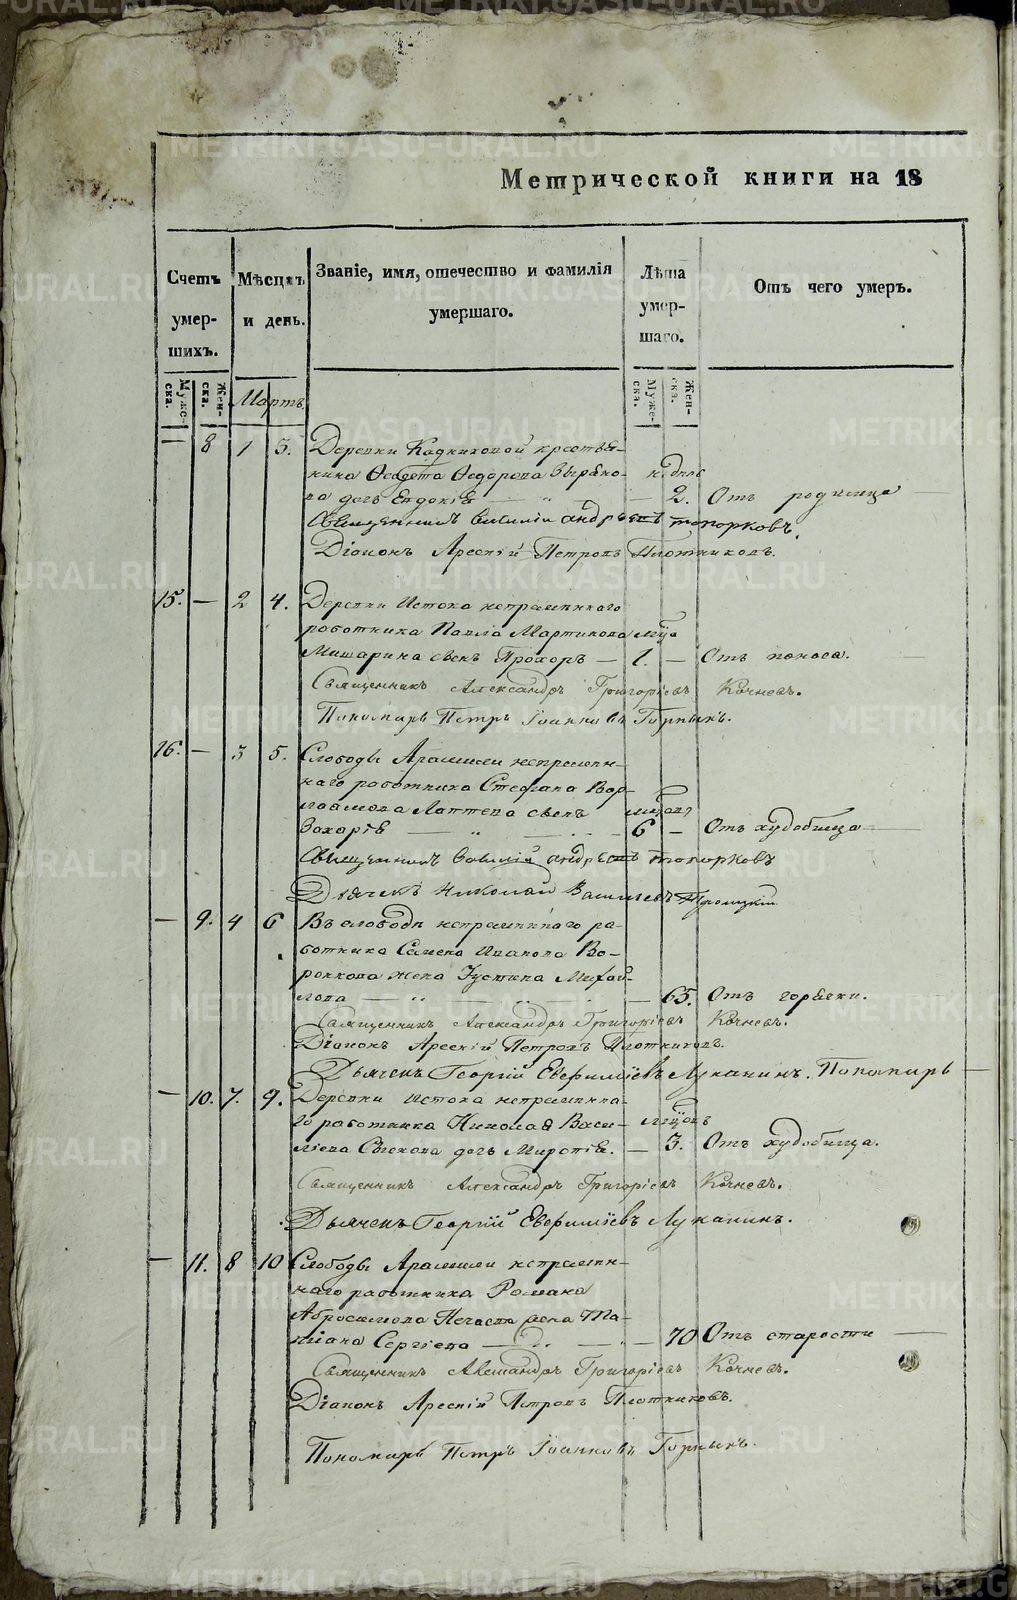 Метрической книги на 18
Счетъ умерших.
Мѣсяцъ и день.
Званіе, имя, отечество и фамилія умершаго.
Лѣта умершаго.
Отъ чего умеръ.
Мужеска.
Женска.
Мартъ.
Мужеска.
Женска.
— 8 1 3. Деревни Кадниковой крестья-
нина Федорова
ва дочь Евдокія — 2. Отъ родимца
Священникъ Василій Андреевъ Топорковъ.
Діаконъ Арсеній Петровъ Плотниковъ.
15. — 2 4. Деревни Истока непременнаго
работника Павла Мартинова
Мишарина сынъ Прохоръ — 1. — Отъ поноса.
Священникъ Александръ Григоріевъ Кочневъ.
Пономарь Петръ Іоанновъ Горныхъ.
16. — 3 5. Слободы Арамили непремен-
наго работника Стефана Вар-
лаамова Лаптева сынъ
Захарія — 6 — Отъ худобища
Священникъ Василій Андреевъ Топорковъ
Дьячекъ Николай Васильевъ Троицкій
— 9. 4 6 Въ слободѣ непременнаго ра-
ботника Семена Иванова Во-
ронкова жена Устина Михай-
лова — 65. Отъ горячки.
Священникъ Александръ Григоріевъ Кочневъ.
Діаконъ Арсеній Петровъ Плотниковъ.
Дьячекъ Георгій Евфиміевъ Луканинъ. Пономарь
— 10. 7. 9. Деревни Истока непременна-
го работника Николая Васи-
ліева дочь Миропія. — 3. Отъ худобища.
Священникъ Александръ Григоріевъ Кочневъ.
Дьячекъ Георгій Евфиміевъ Луканинъ.
— 11. 8 10 Слободы Арамили непремен-
наго работника Романа
Абросимова жена Та-
тіана Сергіева — 70 Отъ старости
Священникъ Александръ Григоріевъ Кочневъ.
Діаконъ Арсеній Петровъ Плотниковъ.
Пономарь Петръ Іоанновъ Горныхъ.
METRIKI.GASO-URAL.RU